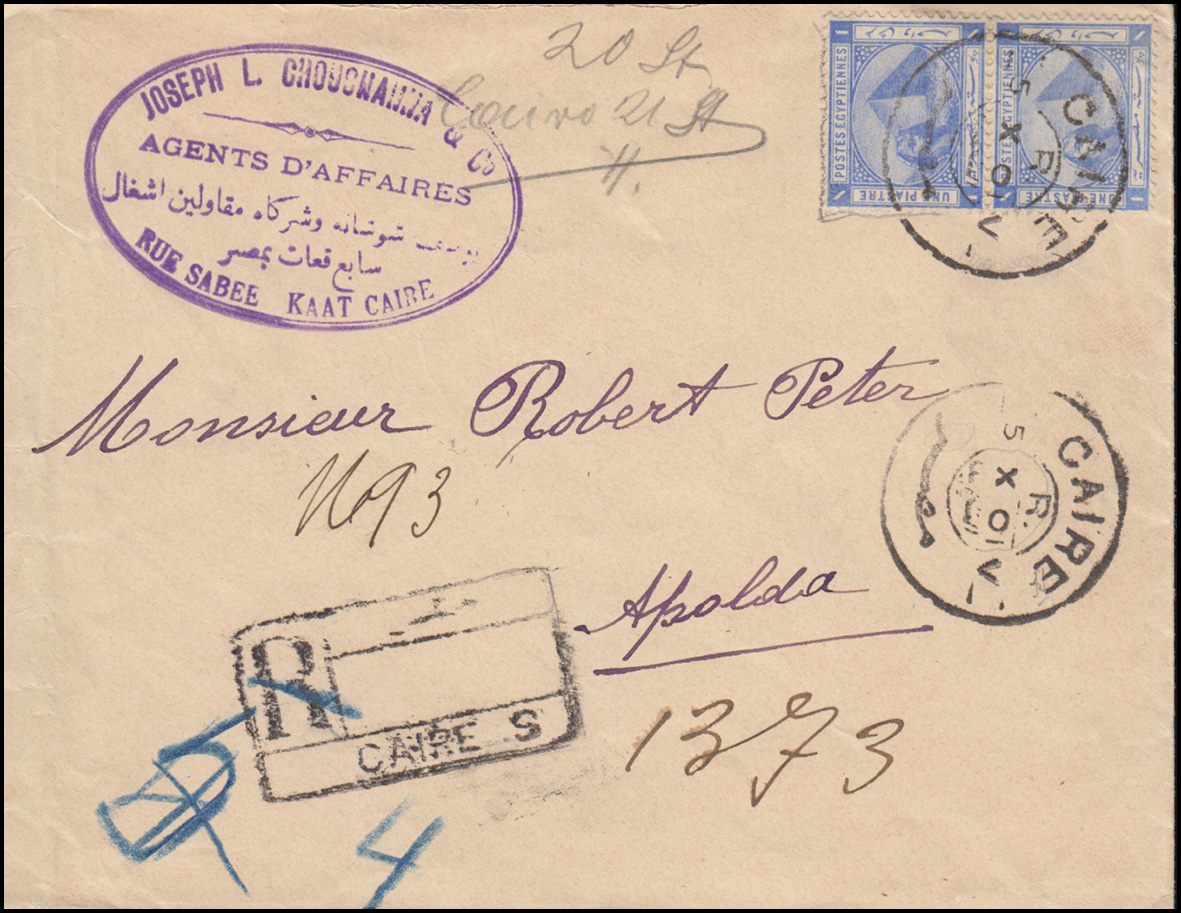 JOSEPH L. CHOUCHANNA & Co
AGENTS D'AFFAIRES
يوسف شوشانه وشركاه مقاولين اشغال
سابع قعات بمصر
RUE SABEE KAAT CAIRE
20 St
Cairo 21 St
POSTES EGYPTIENNES
UNE PIASTRE
UNE PIASTRE
CAIRE
R
5 X 01
V
Monsieur Robert Peter
No 93
CAIRE
R.
5 X 01
V
مصر
Apolda
R
CAIRE S
1373
4